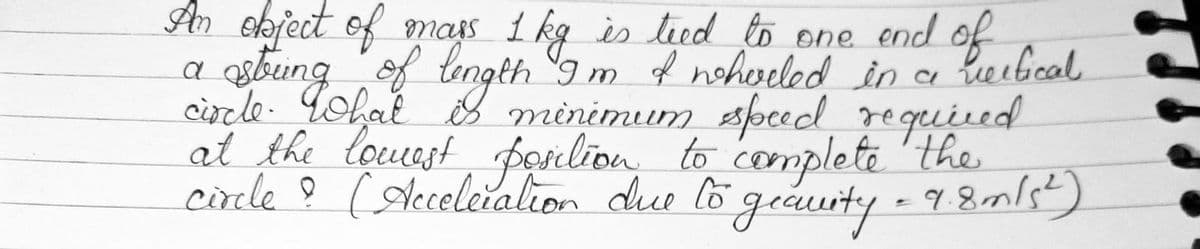 An object of mass 1 kg is tied to one end of
a string of length 9m & whereled in a vertical
circle. What is minimum speed required
at the lowest position to complete the
circle ? (Acceleration due to gravity = 9.8m/s²)